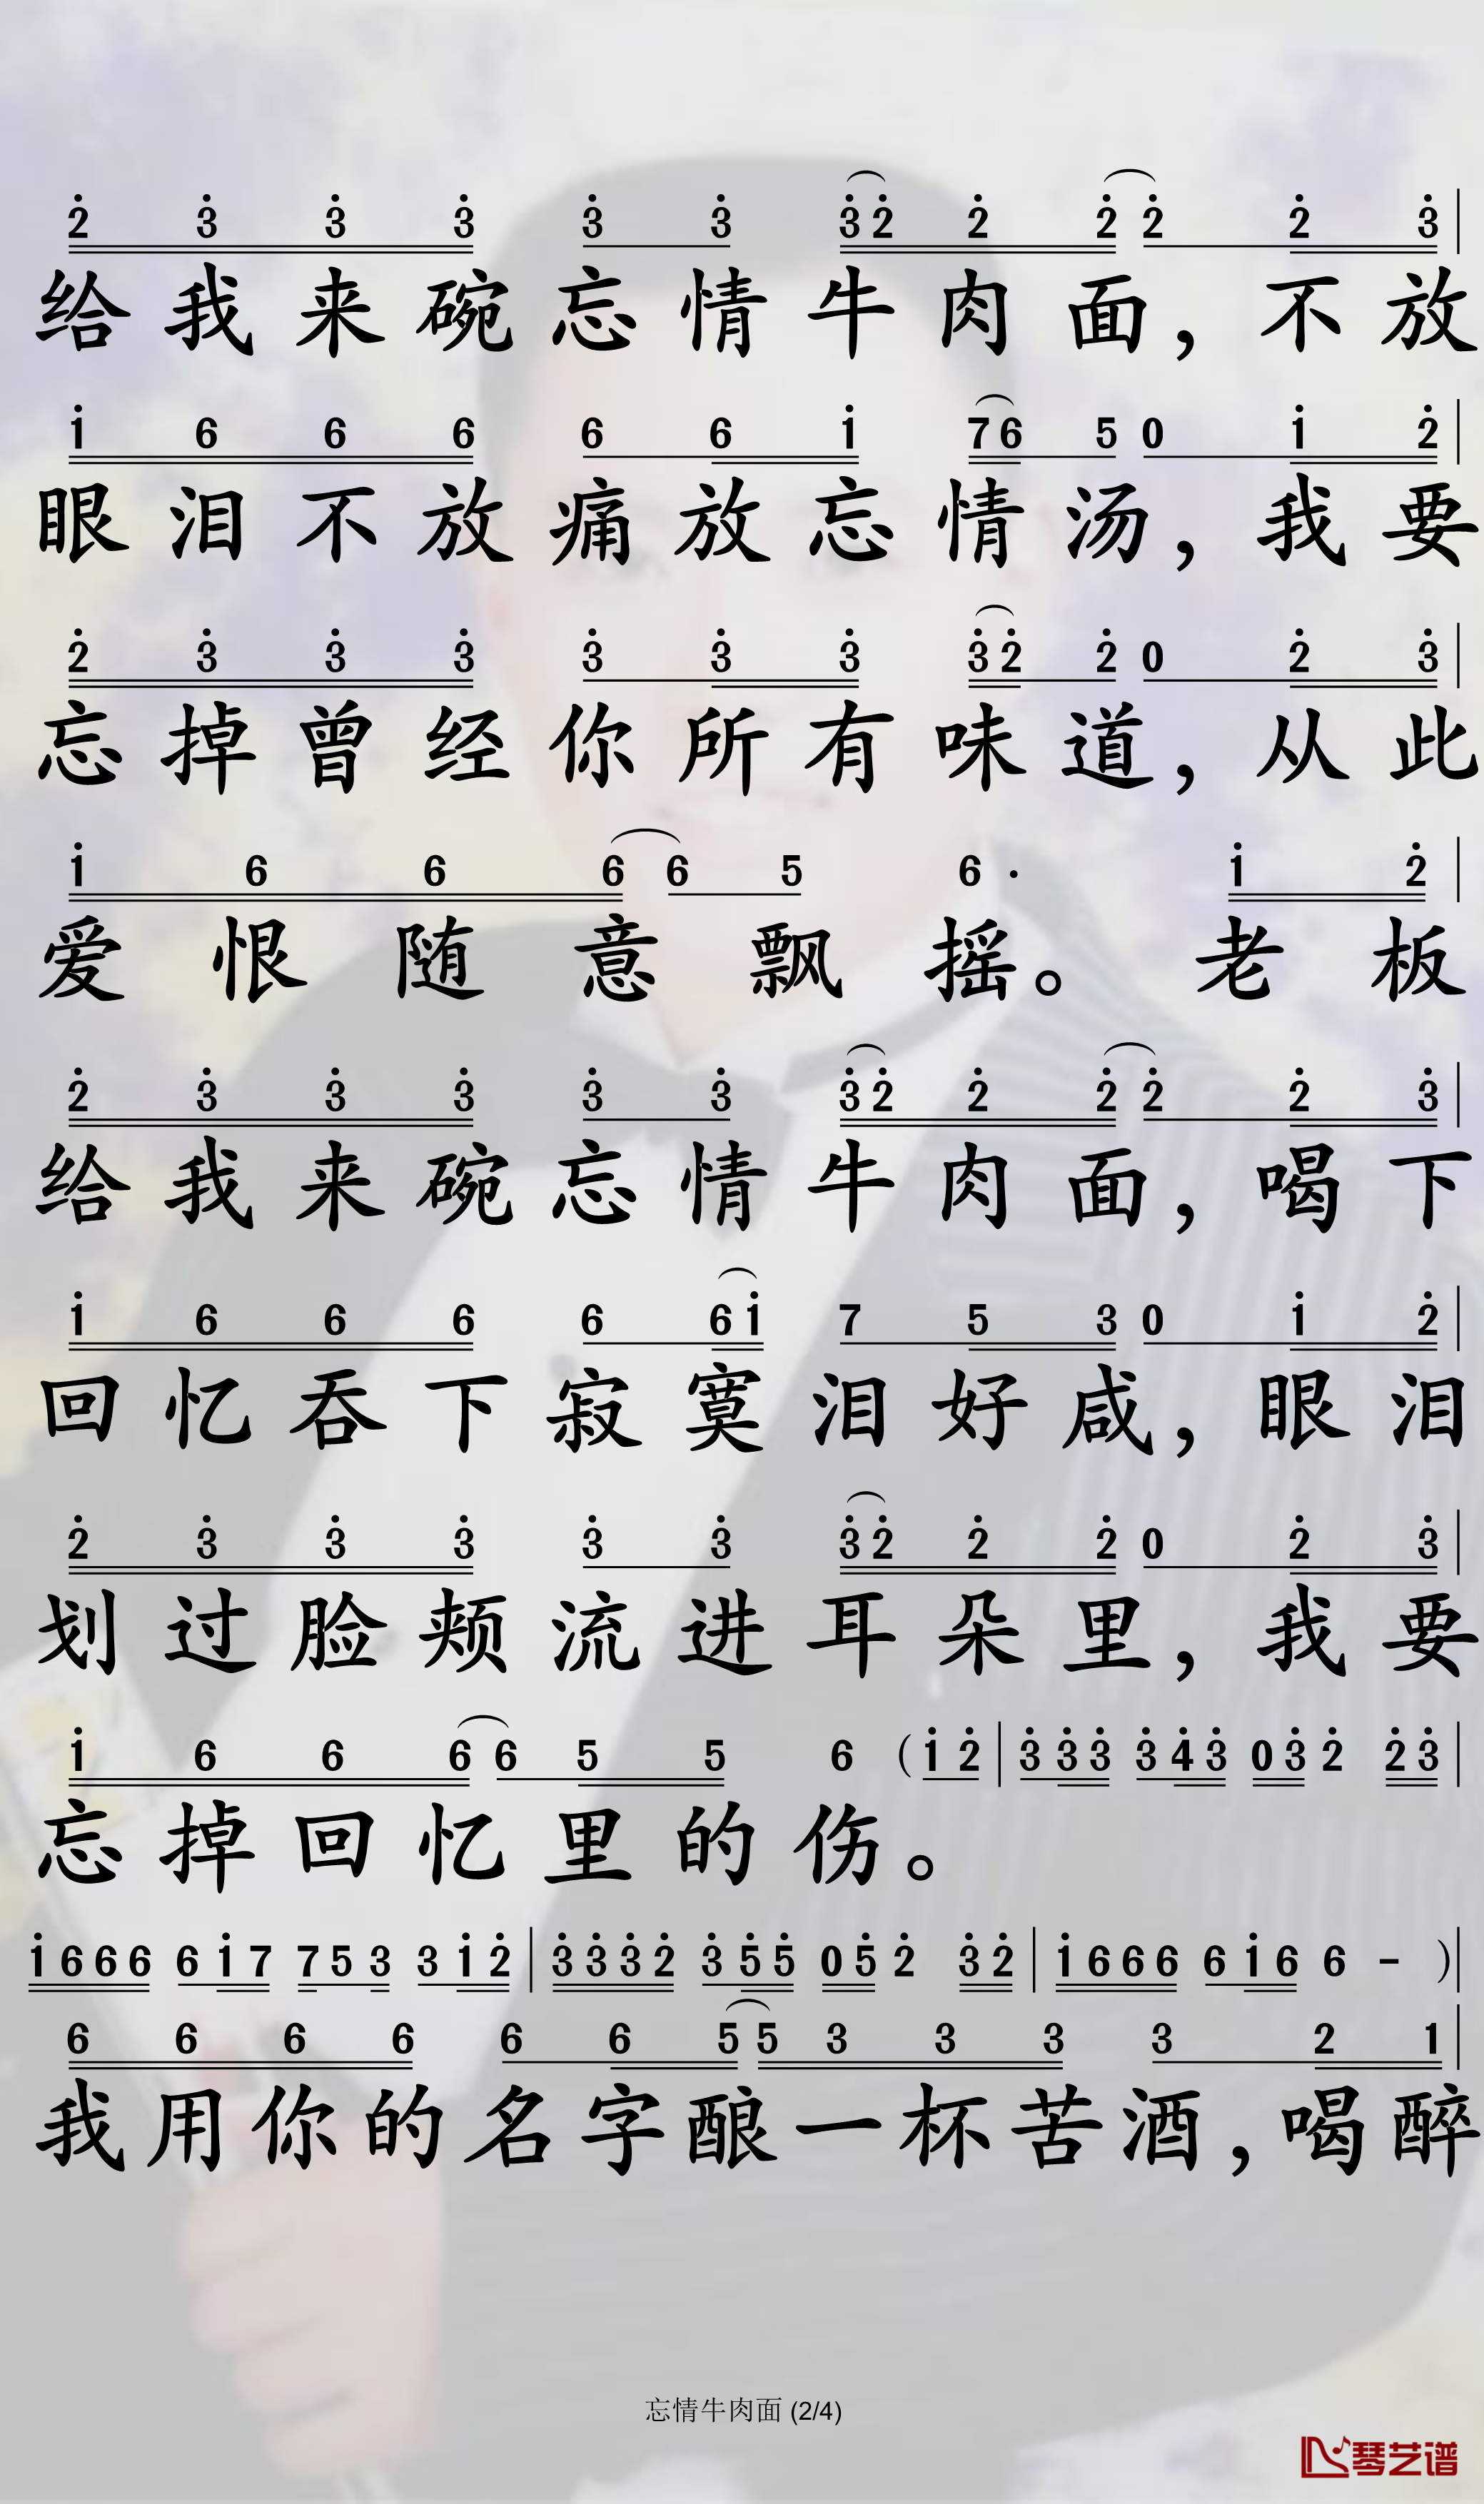 2 3 3 3 3 3 3 2 2 2 2 2 3
给我来碗忘情牛肉面，不放
1 6 6 6 6 6 1 7 6 5 0 1 2
眼泪不放痛放忘情汤，我要
2 3 3 3 3 3 3 3 2 2 0 2 3
忘掉曾经你所有味道，从此
1 6 6 6 6 5 6 · 1 2
爱恨随意飘摇。老板
2 3 3 3 3 3 3 2 2 2 2 2 3
给我来碗忘情牛肉面，喝下
1 6 6 6 6 6 1 7 5 3 0 1 2
回忆吞下寂寞泪好咸，眼泪
2 3 3 3 3 3 3 2 2 2 0 2 3
划过脸颊流进耳朵里，我要
1 6 6 6 6 5 5 6 ( 1 2 | 3 3 3 3 4 3 0 3 2 2 3 |
忘掉回忆里的伤。
1 6 6 6 6 1 7 7 5 3 3 1 2 | 3 3 3 2 3 5 5 0 5 2 3 2 | 1 6 6 6 6 1 6 6 - ) |
6 6 6 6 6 6 5 5 3 3 3 3 2 1 |
我用你的名字酿一杯苦酒，喝醉
忘情牛肉面 (2/4)
琴艺谱